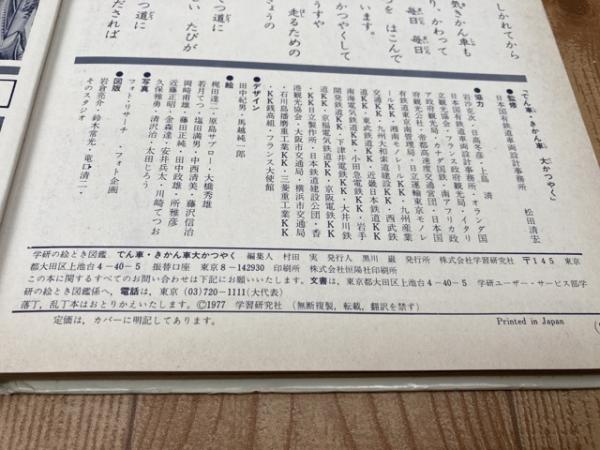 しかれてから
気きかん車も
り、かわって
毎日 毎日
つを はこんで
います。
かつやくして
うすや
走るための
きょうの
て つ道に
い たびが
つ道に
だされば
「でん車・きかん車 大かつやく」
●監修
日本国有鉄道車両設計事務所 松田清宏
●協力
岩沙克次・日鳥冬彦・上島 済
日本国有鉄道車両設計事務所・オランダ国
立観光協会・フランス政府観光局・イタリ
ア政府観光局・カナダ国鉄・南アフリカ政
府観光公社・帝都高速度交通営団・日本国
有鉄道東京南管理局・日立運輸東京モノレ
ールKK・湘南モノレールKK・九州産業
交通KK・九州大和索道建設KK・西武鉄
道KK・東武鉄道KK・近畿日本鉄道KK・
南海電気鉄道KK・小田急電鉄KK・岩手
開発鉄道KK・下津井電鉄KK・大井川鉄
道KK・京福電気鉄道KK・京阪電鉄KK
・KK日立製作所・日本鉄道建設公団・香
港観光協会・大阪市交通局・横浜市交通局
・石川島播磨重工業KK・三菱重工業KK
・KK銭高組・フランス大使館
●デザイン
田中紀男・馬越純一郎
●絵
梶田達二・原島サブロー・大橋秀雄
若月てつ・塩田満男・中西清美・藤沢信治
岡崎甫雄・藤田正純・田中政雄・所雅彦
近藤正昭・金森達・安井兵太・川崎てつお
久保雅勇・清沢治・太田じろう
●写真
フォト・リサーチ ・フォト企画
●図版
岩倉亮介・鈴木常光・竜口清二・
そのスタジオ
学研の絵とき図鑑。 でん車・きかん車大かつやく 編集人 村田 実 発行人 黒川 巌 発行所 株式会社学習研究社 〒145 東京
都大田区上池台4-40-5 振替口座 東京8-142930 印刷所 株式会社恒陽社印刷所
この本に関するすべてのお問い合わせは下記にお願いいたします。文書は、東京都大田区上池台4-40-5 学研ユーザー・サービス部学
研の絵とき図鑑係へ、電話は、東京(03)720-1111(大代表)
落丁,乱丁本はおとりかえいたします。 ©1977 学習研究社 (無断複製,転載,翻訳を禁ず)
定価は,カバーに明記してあります。
Printed in Japan